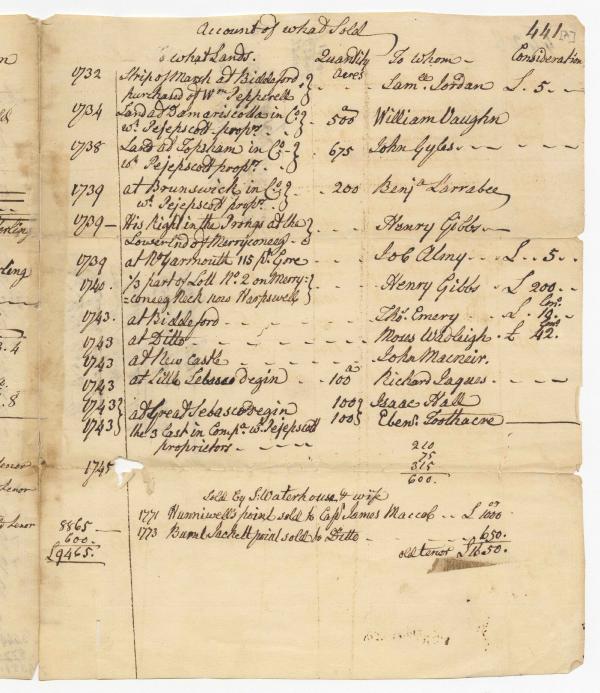 441
Account of what Sold
To what Lands. Quantity acres To whom Consideration
1732 Strip of Marsh at Biddeford
purchased of Wm Pepperell Saml Jordan £ 5
1734 Land at Damariscotta in Co
wth Pejepscott propr 500 William Vaughn
1738 Land at Topsham in Co
wth Pejepscot propr 675 John Gyles
1739 at Brunswick in Co
wth Pejepscot propr 200 Benja Larrabee
1739 His Right in the Prongs at the
Lower End of Merryconeeg Henry Gibbs
1739 at No Yarmouth 115 pr Gore Job Almy £ 5
1740 1/3 part of Lott No. 2 on Merry=
coneeg Neck now Harpswell Henry Gibbs £ 200
1743 at Biddeford Thos. Emery £ 19
1743 at Ditto Moses Wadleigh £ 42.
1743 at New Castle John Macneir.
1743 at Little Sebascodegin 100 Richard Jaques
1743 at Great Sebascodegin 100 Isaac Hall
1743 the 3 Last in Compa wth Pejepscott 100 Ebenr Toothacre
proprietors
210
75
315
600.
1745
Sold By S. Waterhouse & wife
1771 Hunniwell's point sold to Capt James Maccob £ 1000
1773 Burnt Jackett point sold to Ditto 650.
old tenor £1650.
8865
600.
£9465.